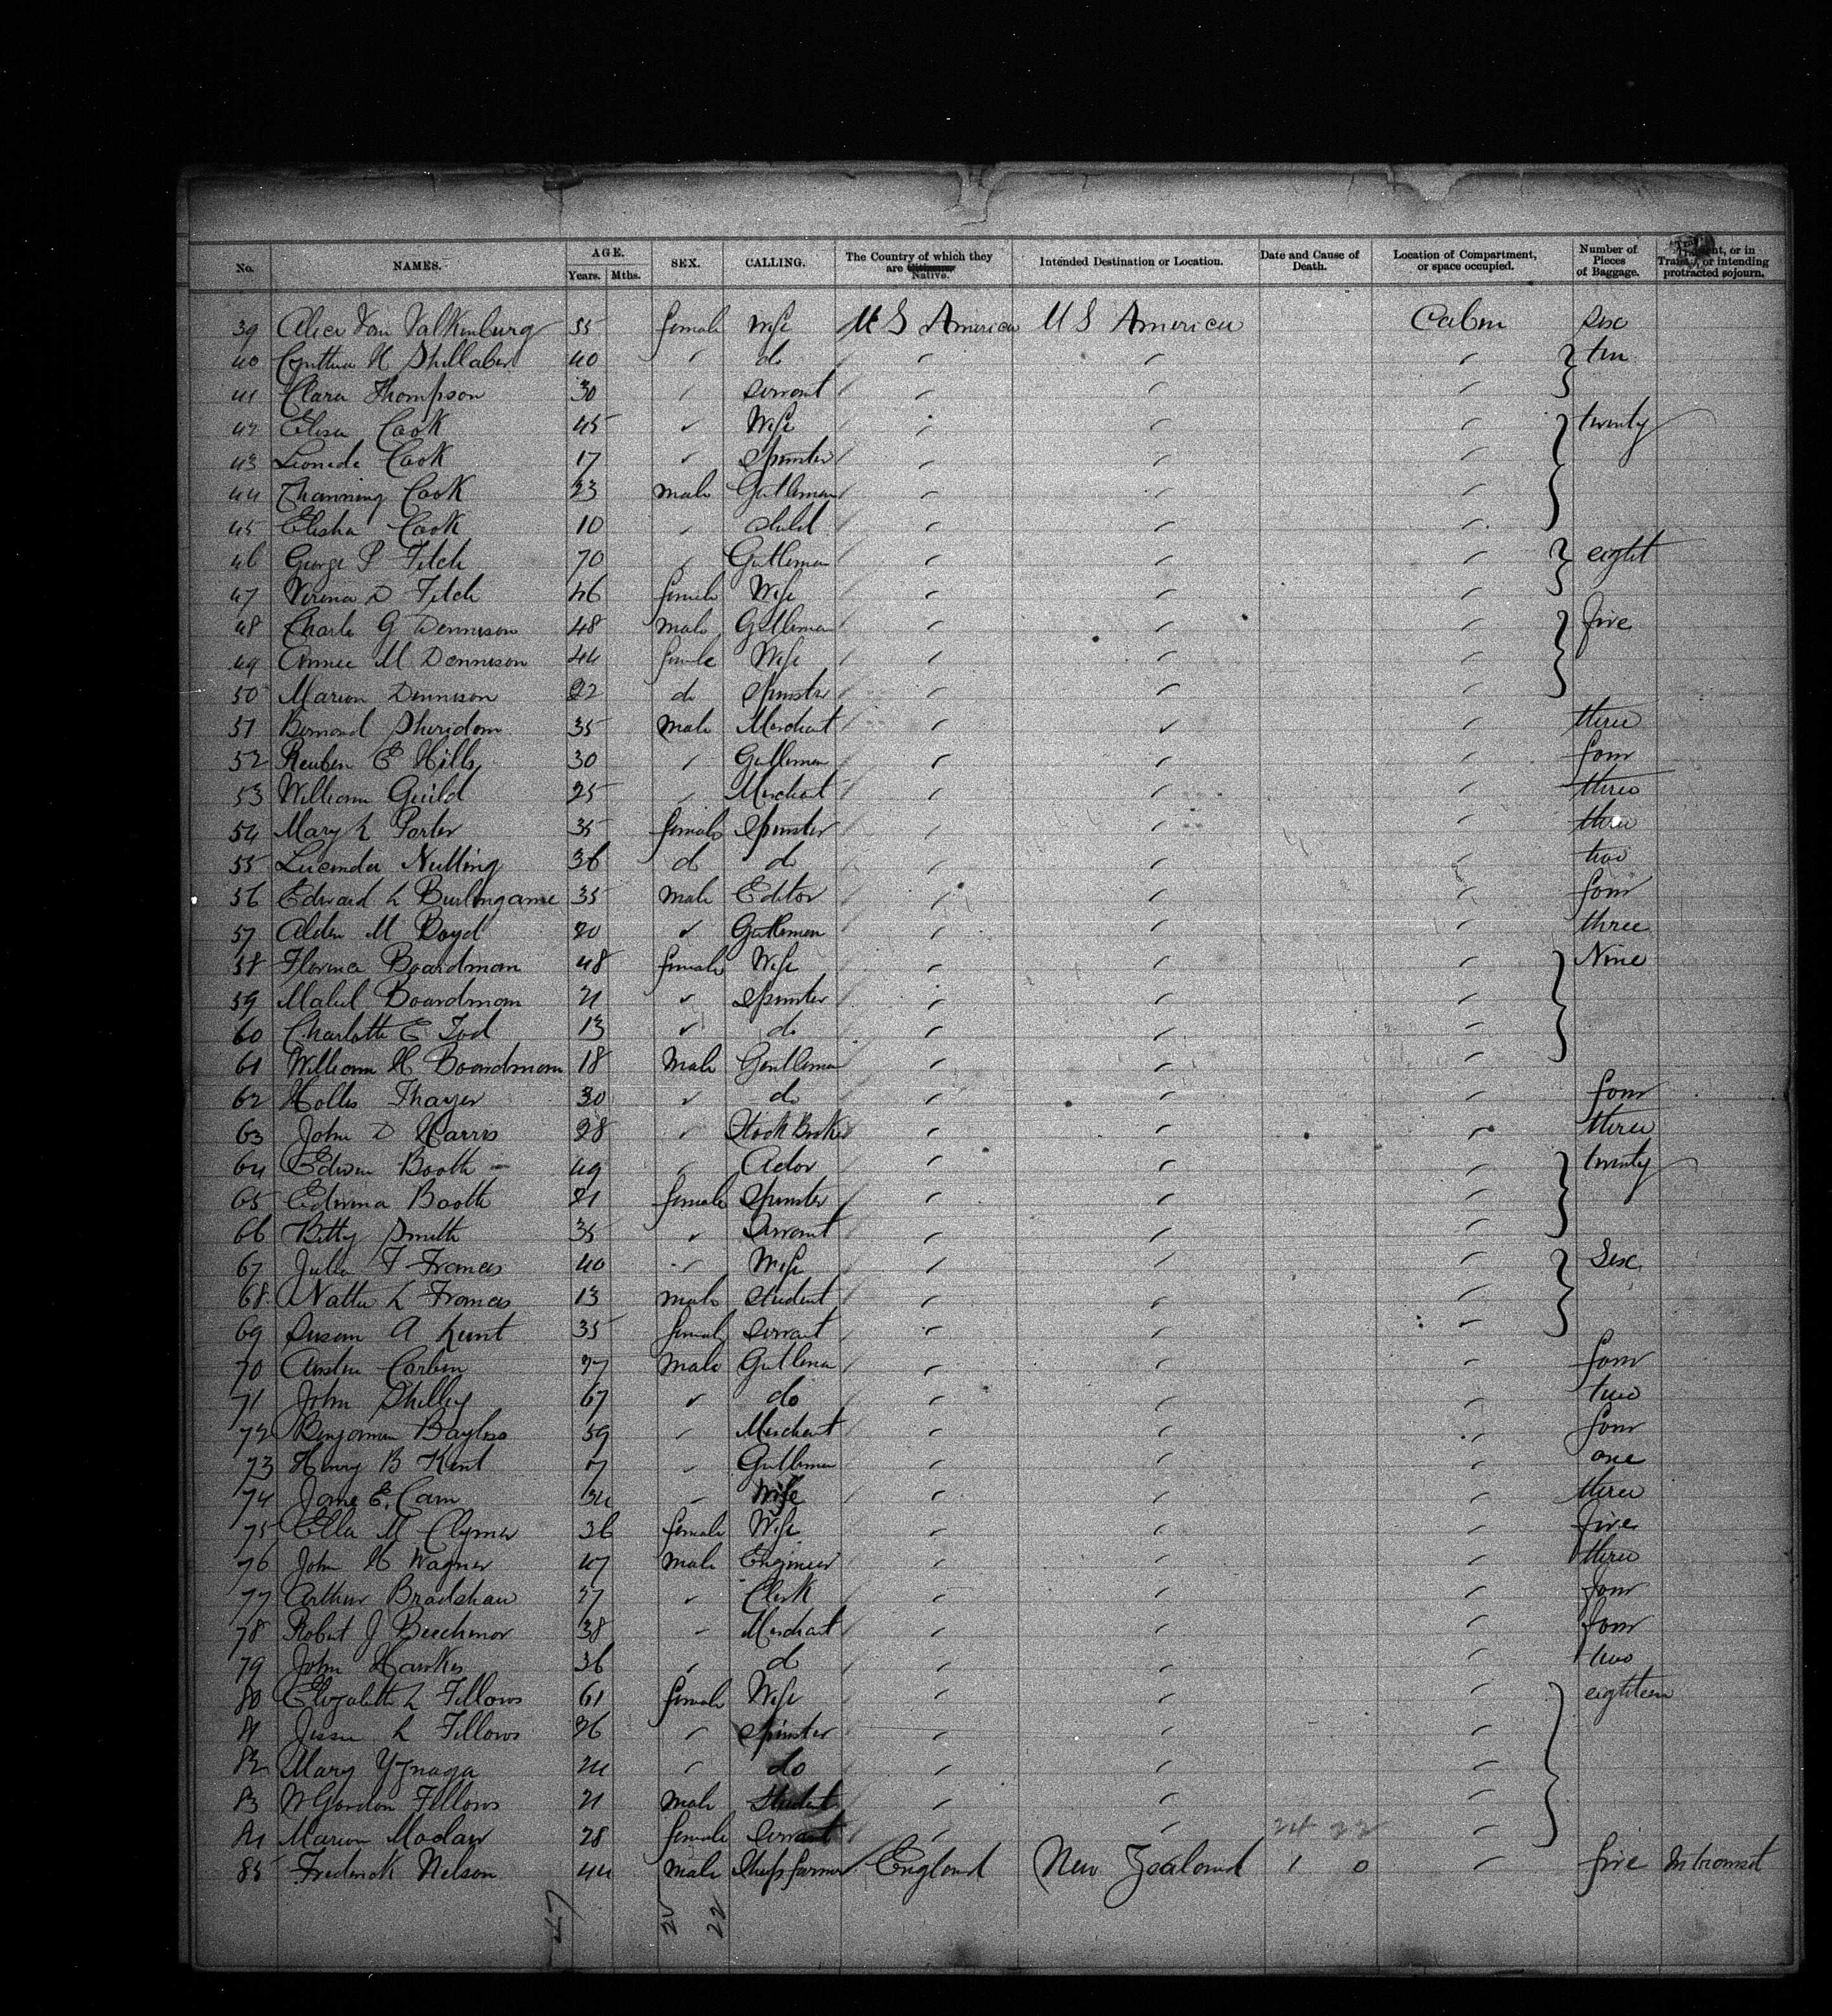 No. NAMES. AGE. Years. Mths. SEX. CALLING. The Country of which they are Native. Intended Destination or Location. Date and Cause of Death. Location of Compartment, or space occupied. Number of Pieces of Baggage. Transit, or in Transit, or intending protracted sojourn.
39 Alice Van Valkenburg 55 female Wife U S America U S America Cabin Six
40 Cynthia H Shillaber 40 " do " " " ten
41 Clara Thompson 30 " Servant " " "
42 Elisa Cook 45 " Wife " " " twenty
43 Leonide Cook 17 " Spinster " " "
44 Channing Cook 23 male Gentleman " " "
45 Elisha Cook 10 " Child " " "
46 George P Fitch 70 " Gentleman " " " eight
47 Verena D Fitch 46 female Wife " " "
48 Charle G Dennison 48 male Gentleman " " " five
49 Annie M Dennison 44 female Wife " " "
50 Marion Dennison 22 do Spinster " " "
51 Bernard Sheridan 35 male Merchant " " " three
52 Reuben E Hills 30 " Gentleman " " " four
53 William Guild 25 " Merchant " " " three
54 Mary L Porter 35 female Spinster " " " three
55 Lucinda Nutting 36 do do " " " two
56 Edward L Burlingame 35 male Editor " " " four
57 Alden M Boyd 20 " Gentleman " " " three
58 Florence Boardman 48 female Wife " " " Nine
59 Mabel Boardman 21 " Spinster " " "
60 Charlotte E Tod 13 " do " " "
61 William H Boardman 18 Male Gentleman " " "
62 Hollis Thayer 30 " do " " " four
63 John D Harris 28 " Stock Broker " " " three
64 Edwin Booth 49 " Actor " " " twenty
65 Edwina Booth 21 female Spinster " " "
66 Betty Smith 35 " Servant " " "
67 Julia T Francis 40 " Wife " " " Six
68 Nattie L Francis 13 male Student " " "
69 Susan A Hunt 35 female Servant " " "
70 Austin Corbin 27 Male Gentleman " " " four
71 John Skelley 67 " do " " " two
72 Benjamin Bayliss 59 " Merchant " " " four
73 Henry B Kent " Gentleman " " " one
74 Jane E. Cam 34 " Wife " " " three
75 Ella M Clymer 36 female Wife " " " five
76 John H Wagner 47 male Engineer " " " three
77 Arthur Bradshaw 27 " Clerk " " " four
78 Robert J Beechinor 38 " Merchant " " " four
79 John Hawkes 36 " do " " " two
80 Elizabeth L Fellows 61 female Wife " " " eighteen
81 Jessie L Fellows 26 " Spinster " " "
82 Mary Yznaga 24 " do " " "
83 W Gordon Fellows 21 male Student " " "
84 Marion 28 female Servant " " "
85 Frederick Nelson 44 male Sheep farmer England New Zealand 1 0 " five In transit
47 22